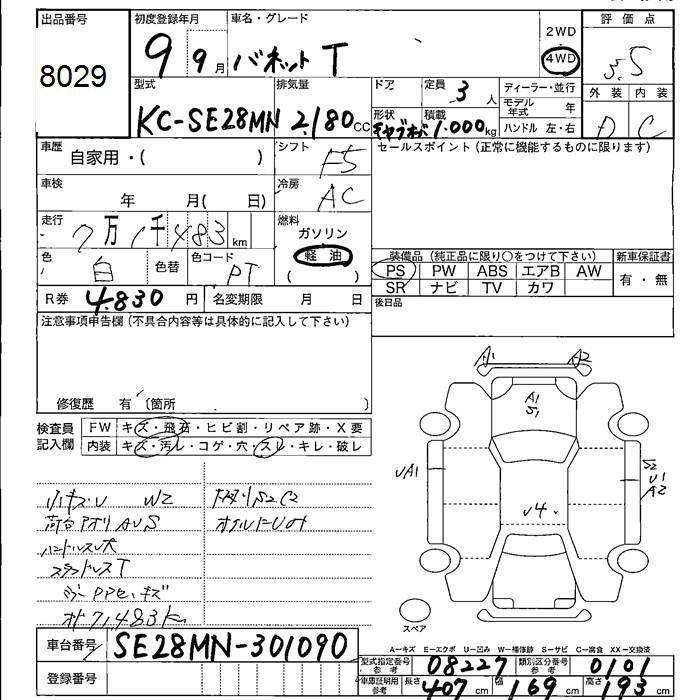 出品番号
8029
初度登録年月
9 9月
車名・グレード
バネット T
2WD
4WD
評価点
3.5
型式
KC-SE28MN
排気量
2.180cc
ドア
定員
3人
形状
積載
1.000kg
ディーラー・並行
モデル年式 年
ハンドル 左・右
外装 内装
D C
車歴
自家用・( )
シフト
F5
セールスポイント (正常に機能するものに限ります)
車検
年 月( 日)
冷房
AC
走行
7万1千483km
燃料
ガソリン
軽油
( )
色
白
色替
色コード
PT
装備品 (純正品に限り○をつけて下さい)
新車保証書
PS PW ABS エアB AW
有・無
SR ナビ TV カワ
R券 4.830円
名変期限 月 日
後日品
注意事項申告欄 (不具合内容等は具体的に記入して下さい)
修復歴 有 〔箇所 〕
検査員記入欄
FW キズ・飛石・ヒビ割・リペア跡・X要
内装 キズ・汚レ・コゲ・穴・スレ・キレ・破レ
A1 A2
A1
S1
UA1
S2
U1
A2
U4
W2
荷台アオリ AUS
S2 C2
ハンドルスレ大
スタッドレスT
71483K
スペア
A-キズ E-エクボ U-凹み W-補修跡 S-サビ C-腐食 XX-交換済
車台番号
SE28MN-301090
登録番号
型式指定番号参考
08227
類別区分番号参考
0101
車庫証明用参考
長さ 407cm 幅 169cm 高さ 193cm